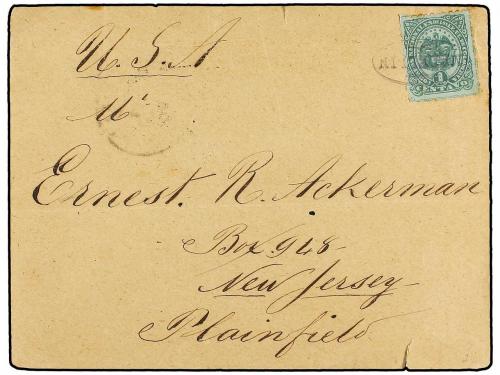 U. S. A
Mr
Ernest. R. Ackerman
Box 948-
New Jersey-
Plainfield
1